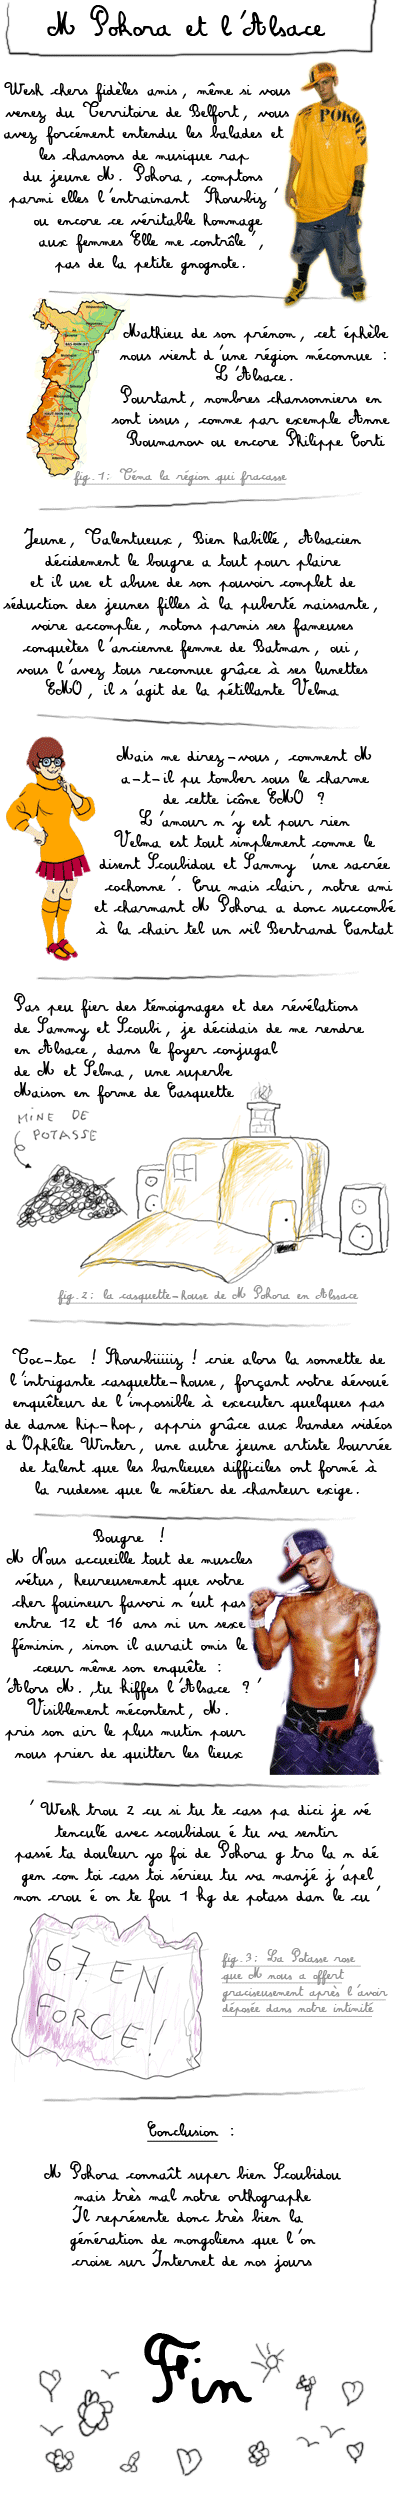 M Pokora et l'Alsace
Wesh chers fidèles amis, même si vous
venez du Territoire de Belfort, vous
avez forcément entendu les balades et
les chansons de musique rap
du jeune M. Pokora, comptons
parmi elles l'entrainant 'Showbiz'
ou encore ce véritable hommage
aux femmes 'Elle me contrôle',
pas de la petite gnognote.
POKORA
Mathieu de son prénom, cet éphèbe
nous vient d'une région méconnue :
L'Alsace.
Pourtant, nombres chansonniers en
sont issus, comme par exemple Anne
Roumanov ou encore Philippe Corti
fig.1: Téma la région qui fracasse
Jeune, Talentueux, Bien habillé, Alsacien
décidement le bougre a tout pour plaire
et il use et abuse de son pouvoir complet de
séduction des jeunes filles à la puberté naissante,
voire accomplie, notons parmis ses fameuses
conquètes l'ancienne femme de Batman, oui,
vous l'avez tous reconnue grâce à ses lunettes
EMO, il s'agit de la pétillante Velma
Mais me direz-vous, comment M
a-t-il pu tomber sous le charme
de cette icône EMO ?
L'amour n'y est pour rien
Velma est tout simplement comme le
disent Scoubidou et Sammy 'une sacrée
cochonne'. Cru mais clair, notre ami
et charmant M Pokora a donc succombé
à la chair tel un vil Bertrand Cantat
Pas peu fier des témoignages et des révélations
de Sammy et Scoubi, je décidais de me rendre
en Alsace, dans le foyer conjugal
de M et Selma, une superbe
Maison en forme de Casquette
MINE DE
POTASSE
fig.2: la casquette-house de M Pokora en Alssace
Toc-toc ! Showbiiiiiz ! crie alors la sonnette de
l'intrigante casquette-house, forçant votre dévoué
enquêteur de l'impossible à executer quelques pas
de danse hip-hop, appris grâce aux bandes vidéos
d'Ophélie Winter, une autre jeune artiste bourrée
de talent que les banlieues difficiles ont formé à
la rudesse que le métier de chanteur exige.
Bougre !
M Nous accueille tout de muscles
vétus, heureusement que votre
cher fouineur favori n'eut pas
entre 12 et 16 ans ni un sexe
féminin, sinon il aurait omis le
cœur même son enquête :
'Alors M.,tu kiffes l'Alsace ?'
Visiblement mécontent, M.
pris son air le plus mutin pour
nous prier de quitter les lieux
'Wesh trou 2 cu si tu te cass pa dici je vé
tenculé avec scoubidou é tu va sentir
passé ta douleur yo foi de Pokora g tro la n dé
gen com toi cass toi sérieu tu va manjé j'apel
mon crou é on te fou 1 kg de potass dan le cu'
6.7. EN
FORCE!
fig.3: La Potasse rose
que M nous a offert
graciseusement après l'avoir
déposée dans notre intimité
Conclusion :
M Pokora connaît super bien Scoubidou
mais très mal notre orthographe
Il représente donc très bien la
génération de mongoliens que l'on
croise sur Internet de nos jours
Fin